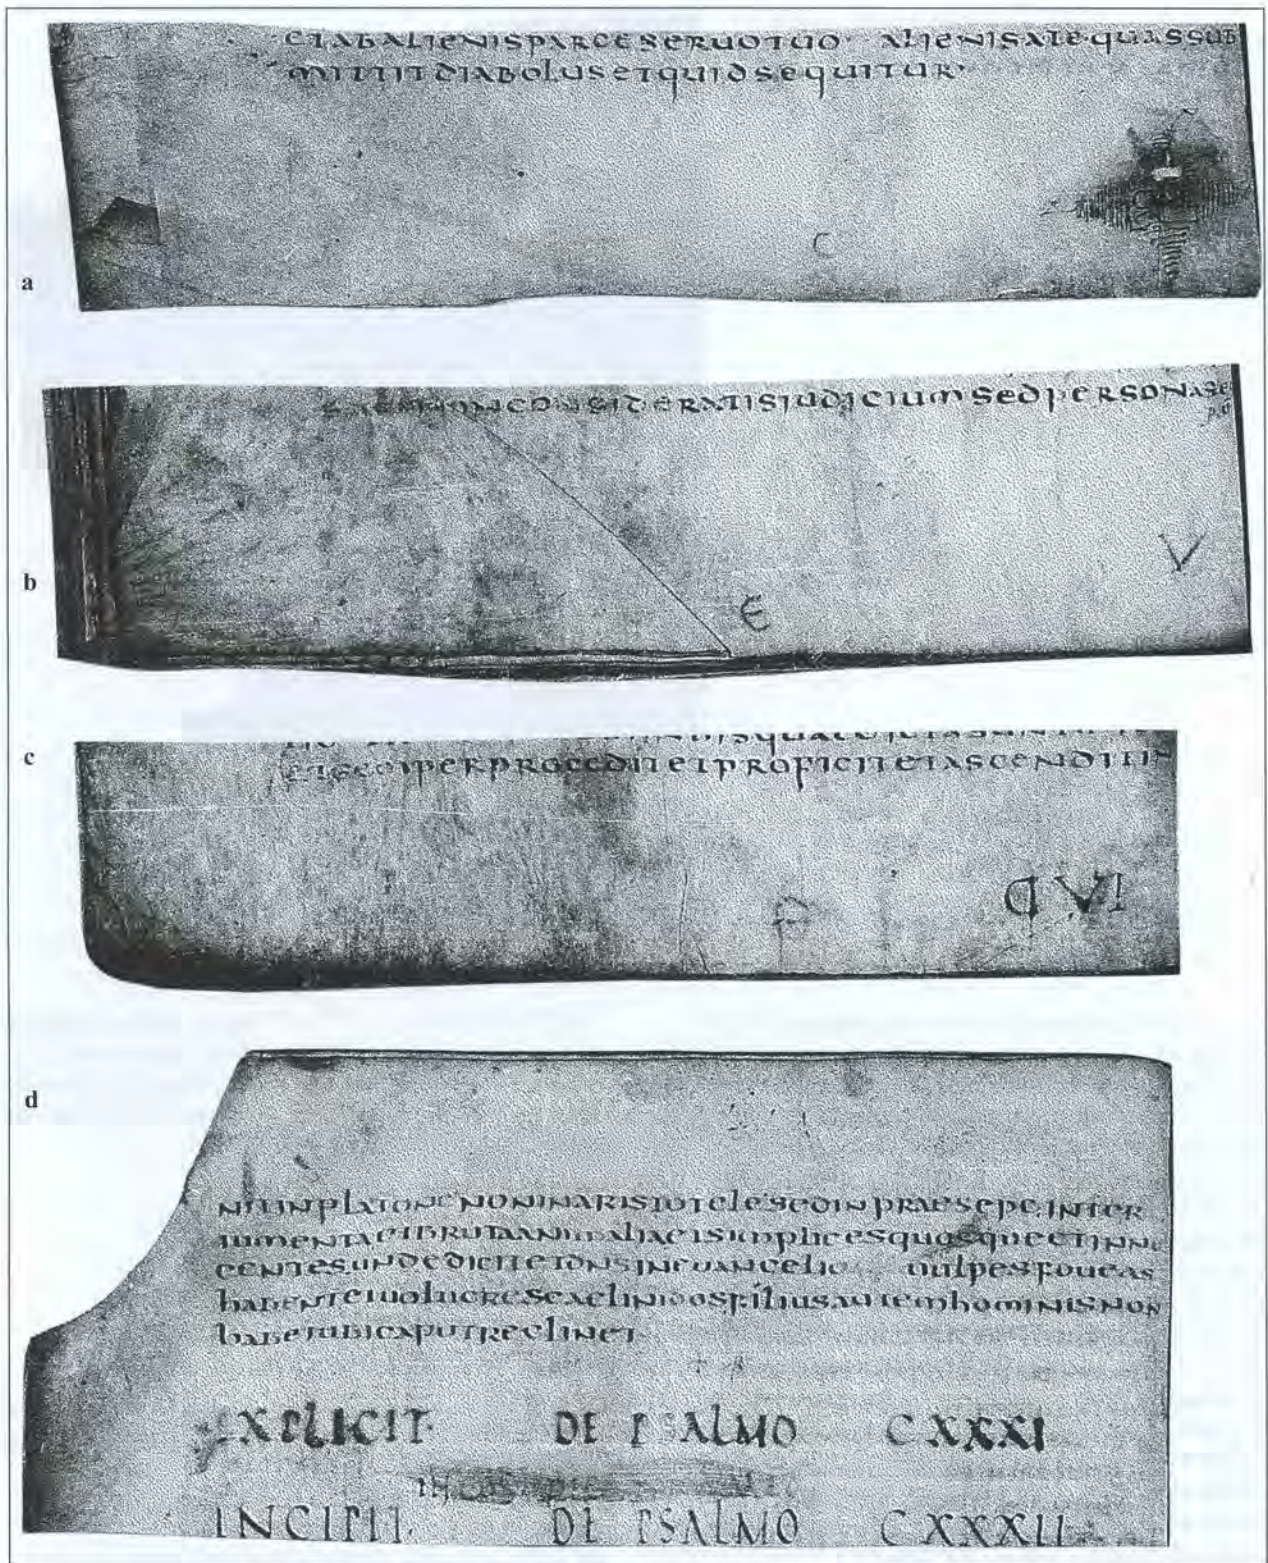 a
ETABALIENISPARCESERUOTUO ALIENISATEQUASSUB
MITTITDIABOLUSETQUIDSEQUITUR
C
b
NONCONSIDERATISIUDICIUMSEDPERSONASE
V
E
c
PERPROCEDITEETPROFICITEETASCENDITIS
Q VI
d
NITINPLATONENONINARISTOTELESEDINPRAESEPE, INTER
IUMENTAETBRUTAANIMALIAETSIMPLICESQUOSQUEETINNO
CENTES.UNDEDICITETDNSINEUANGELIO UULPESFOUEAS
HABENTETUOLUCRESCAELINIDOSFILIUSAUTEMHOMINISNON
HABETUBICAPUTRECLINET
EXPLICIT DE PSALMO CXXXI
INCIPIT DE PSALMO CXXXII